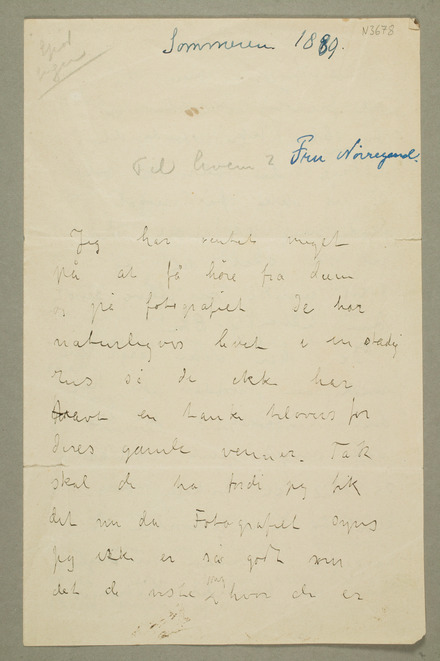 N3678
Sommeren 1889.
Til hvem? Fru Nörregaard.
Jeg har ventet meget
på at få höre fra dem
og på fotografiet De har
naturligvis levet i en stadig
rus så de ikke har
havt en tanke tilovers for
deres gamle venner. Tak
skal de ha fordi jeg fik
det nu da Fotografiet synes
jeg ikke er så godt som
det de viste mig hvor de er